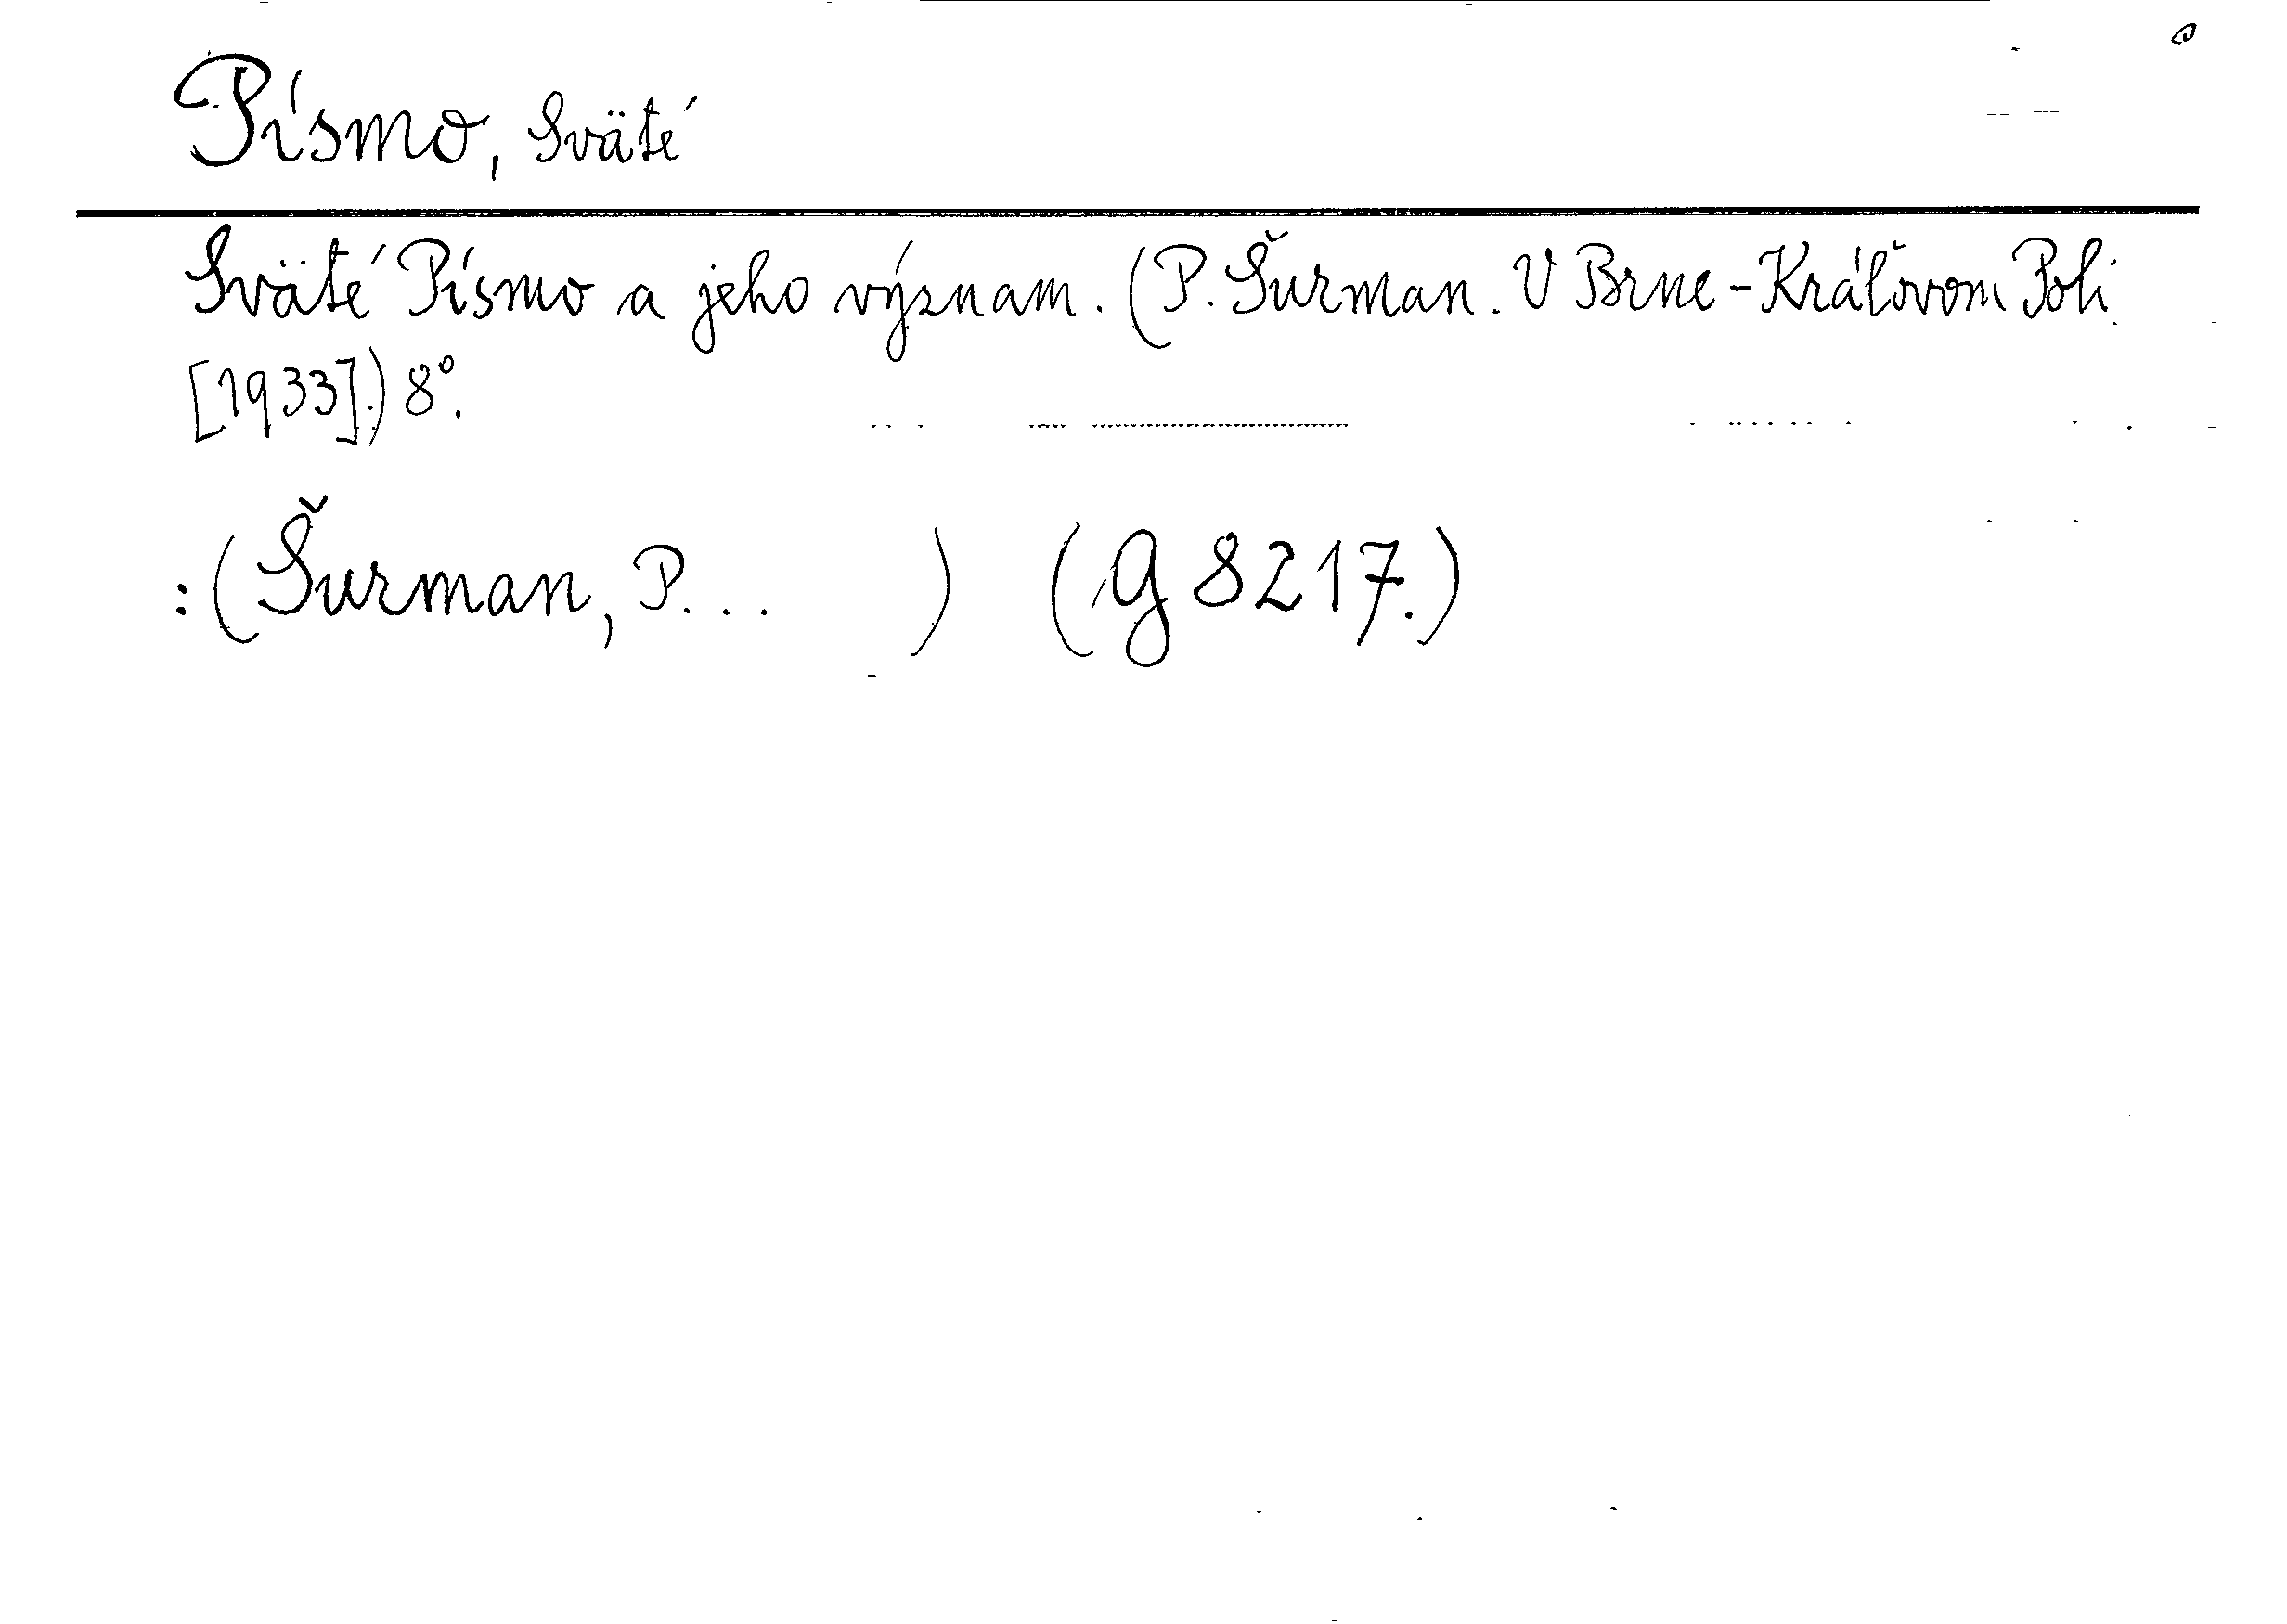 Písmo, Sväté
Sväté Písmo a jeho význam. (P. Šurman. V Brne-Kráľovom Poli
[1933].) 8°.
:(Šurman, P... ) (G 8217.)